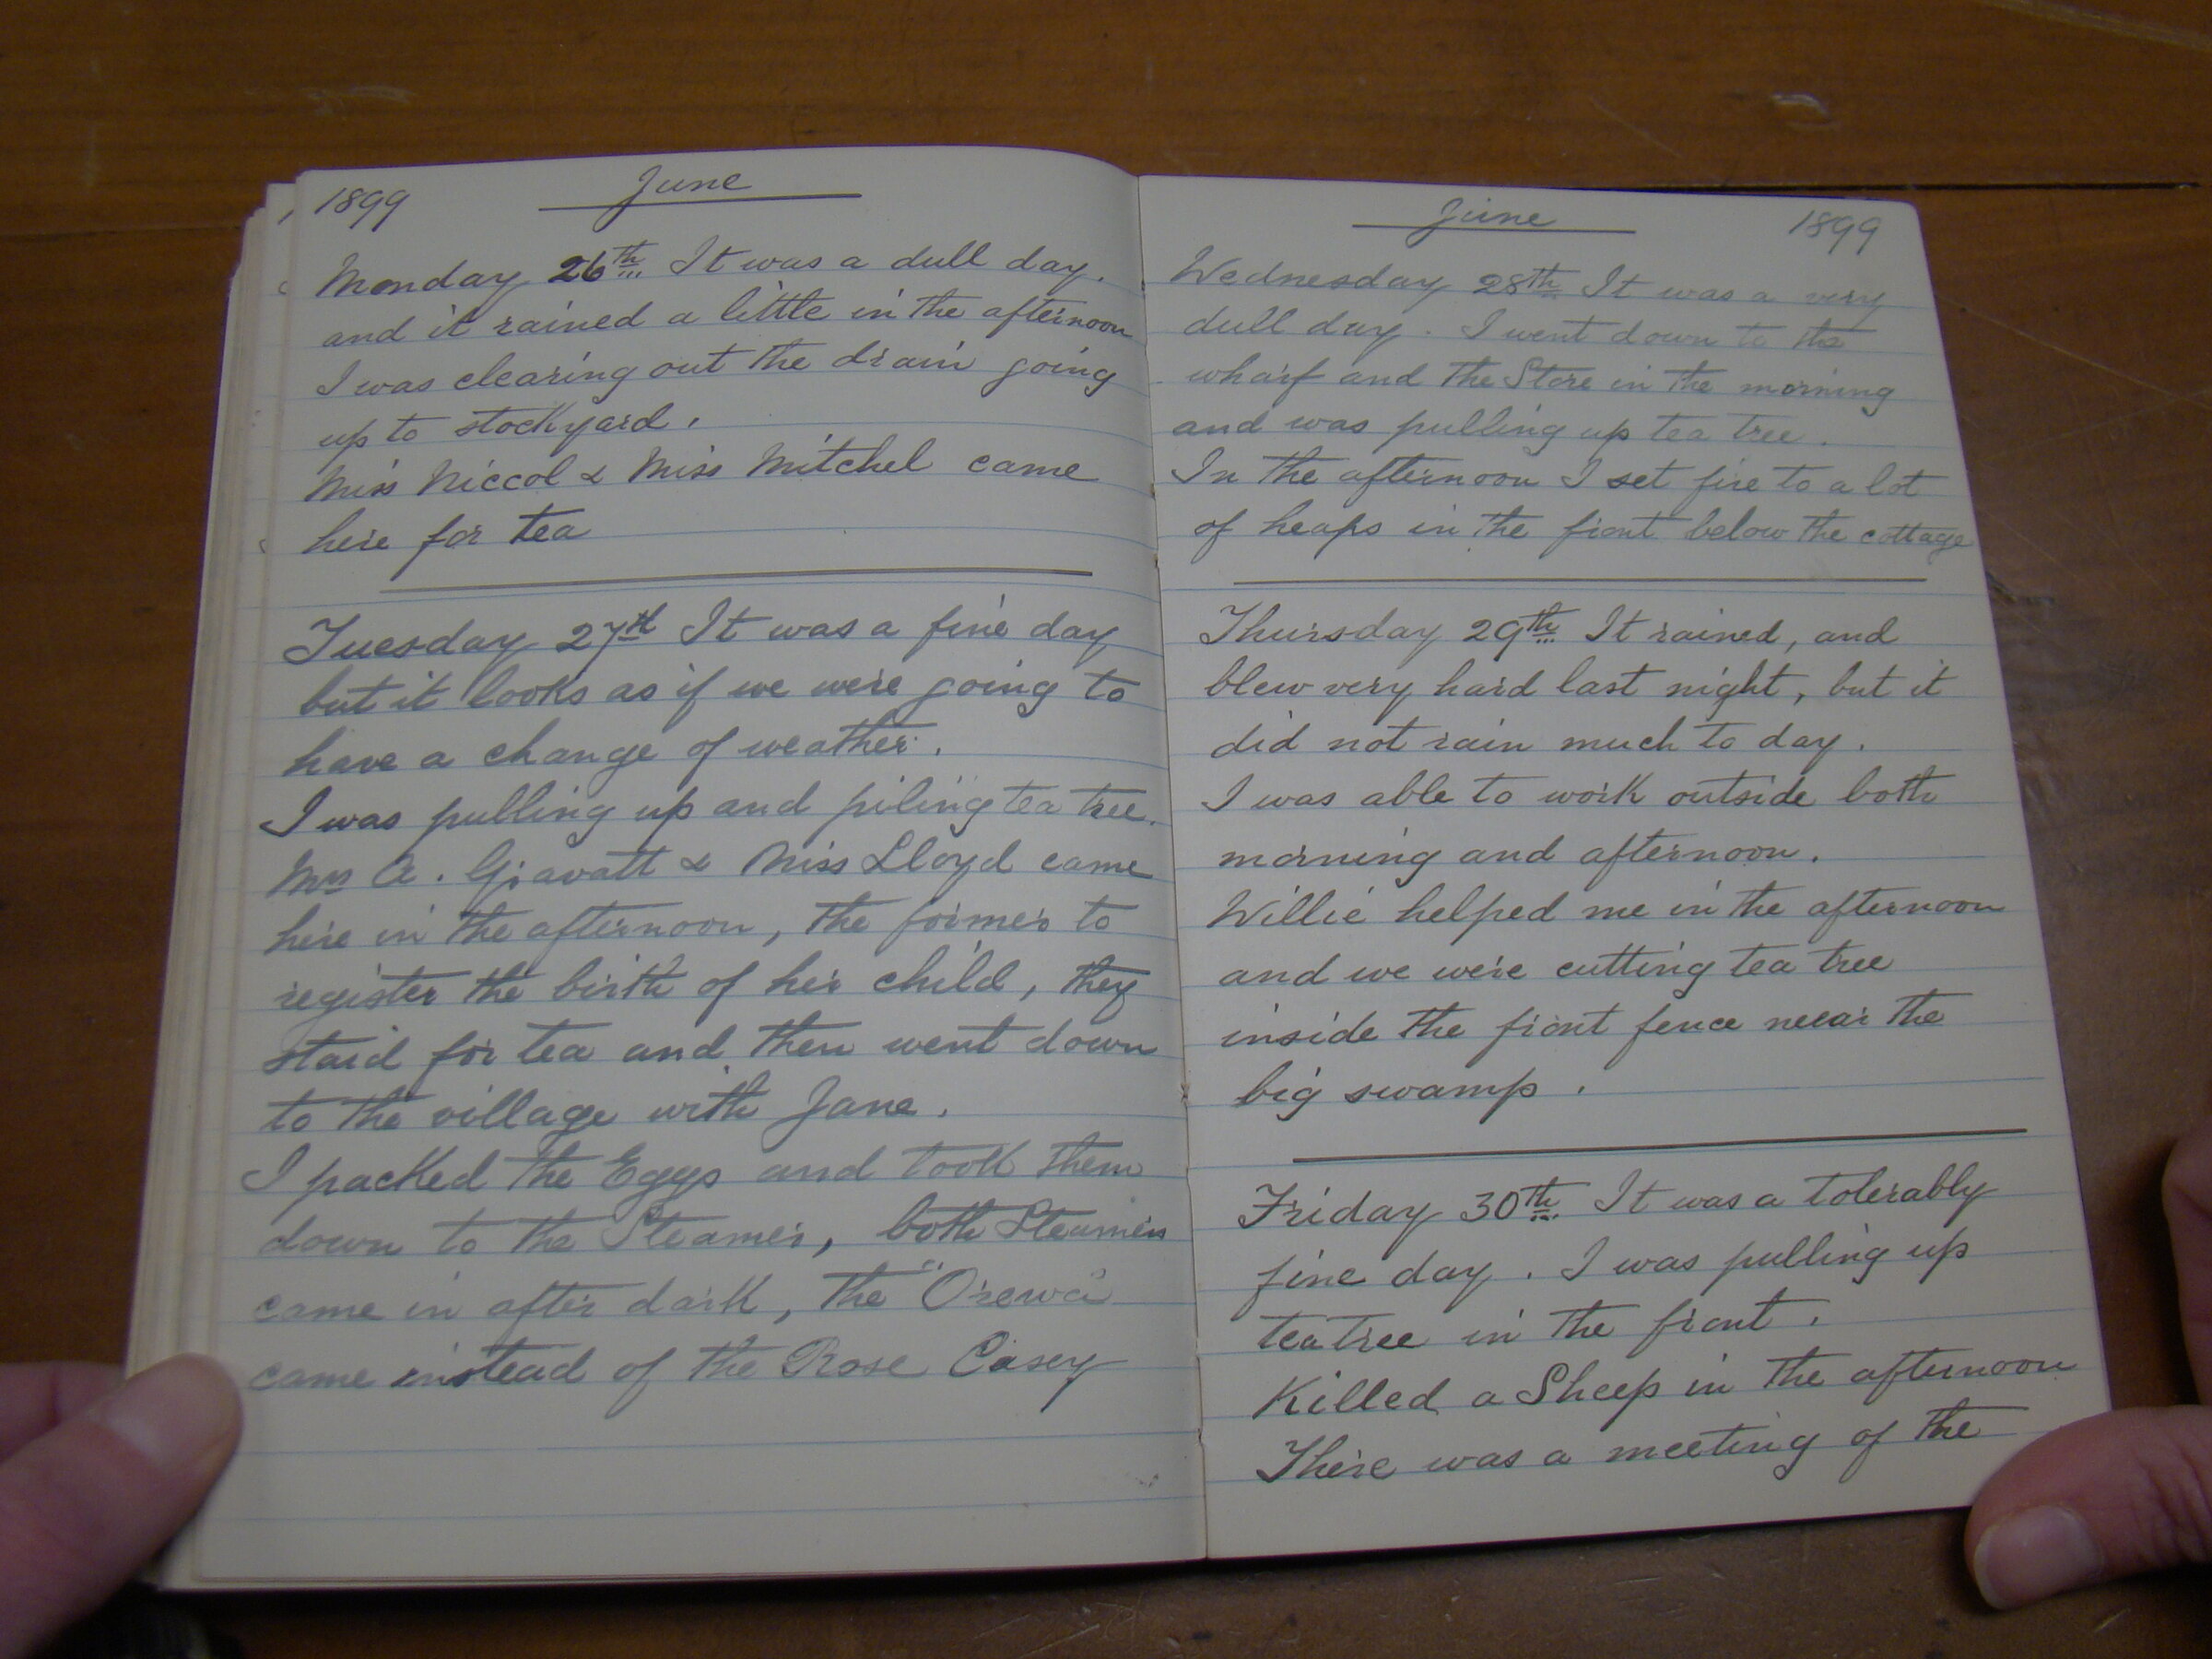 1899 June
Monday 26th It was a dull day.
and it rained a little in the afternoon
I was clearing out the drain going
up to stockyard.
Miss Niccol & Miss Mitchel came
here for tea
Tuesday 27th It was a fine day
but it looks as if we were going to
have a change of weather.
I was pulling up and piling tea tree.
Mrs A. Gravatt & Miss Lloyd came
here in the afternoon, the former to
register the birth of her child, they
staid for tea and then went down
to the village with Jane.
I packed the Eggs and took them
down to the Steamer, both Steamers
came in after dark, the "Orewa"
came instead of the Rose Casey
June 1899
Wednesday 28th It was a very
dull day. I went down to the
wharf and the Store in the morning
and was pulling up tea tree.
In the afternoon I set fire to a lot
of heaps in the front below the cottage
Thursday 29th It rained, and
blew very hard last night, but it
did not rain much to day.
I was able to work outside both
morning and afternoon.
Willie helped me in the afternoon
and we were cutting tea tree
inside the front fence near the
big swamp.
Friday 30th It was a tolerably
fine day. I was pulling up
tea tree in the front.
Killed a Sheep in the afternoon
There was a meeting of the